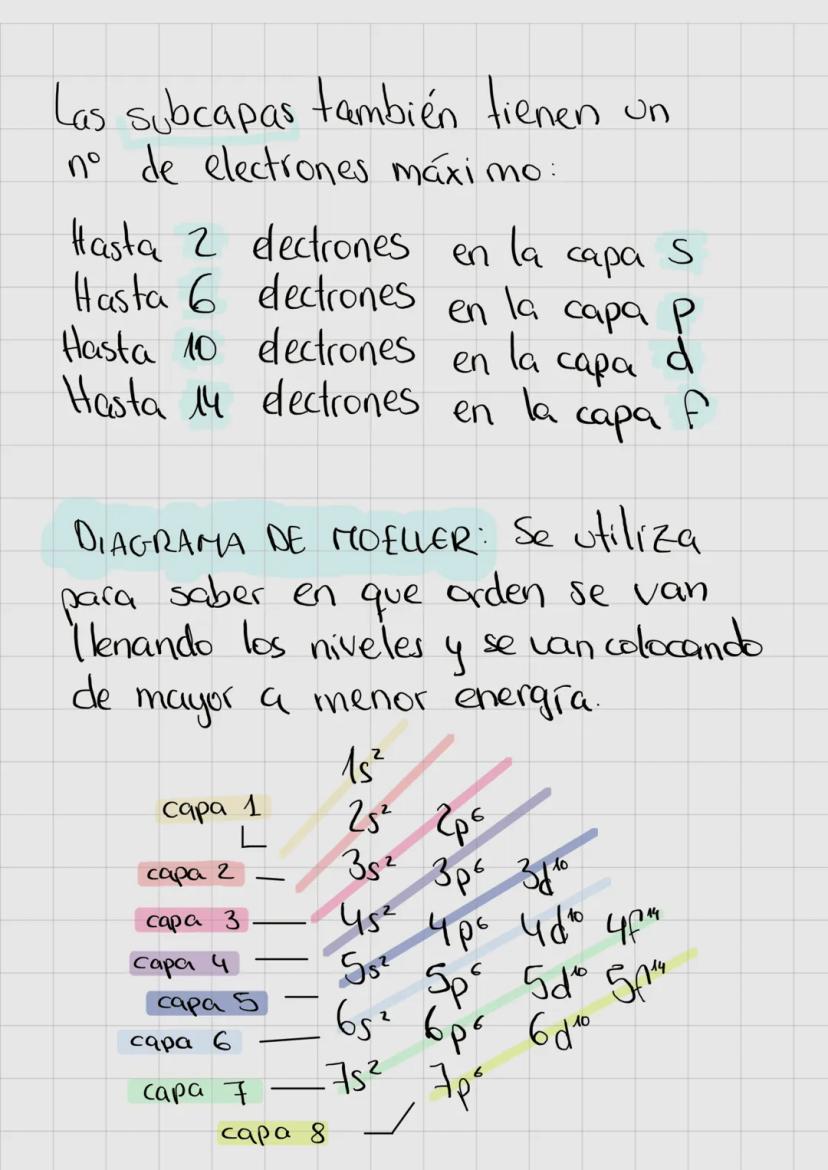 Las subcapas también tienen un
nº de electrones máximo:
Hasta 2 electrones en la capa s
Hasta 6 electrones en la capa p
Hasta 10 electrones en la capa d
Hasta 14 electrones en la capa f
DIAGRAMA DE MOELLER: Se utiliza
para saber en que orden se van
llenando los niveles y se van colocando
de mayor a menor energía.
1s²
capa 1 2s² 2p⁶
capa 2 3s² 3p⁶ 3d¹⁰
capa 3 4s² 4p⁶ 4d¹⁰ 4f¹⁴
capa 4 5s² 5p⁶ 5d¹⁰ 5f¹⁴
capa 5
capa 6 6s² 6p⁶ 6d¹⁰
capa 7 7s² 7p⁶
capa 8